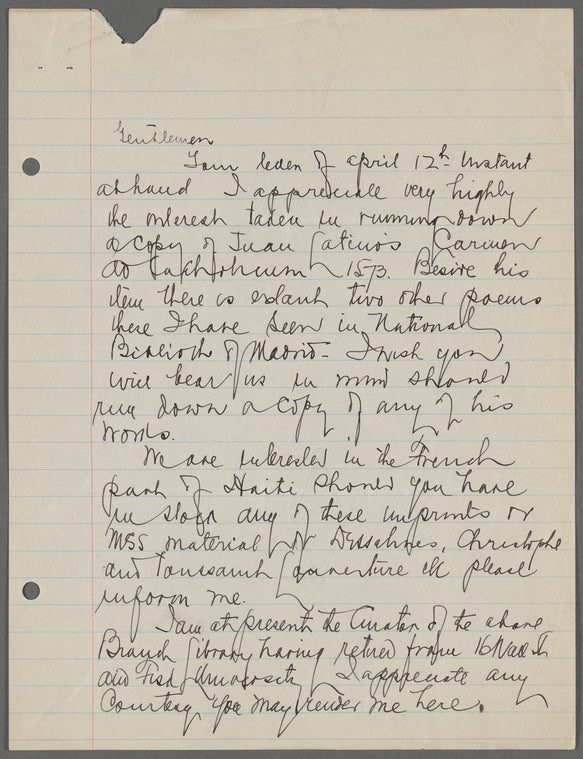 Gentlemen
Your letter of April 12th Instant
at hand I appreciate very highly
the interest taken in running down
a copy of Juan Latino's Carmen
ad 1573. Beside his
item there is extant two other poems
there I have seen in National
Biblioth of Madrid - I wish you
will bear us in mind should
run down a copy of any of his
works.
We are interested in the French
part of Haiti should you have
in stock any of these imprints or
MSS material of Dessalines, Christophe
and Toussaint Louverture etc please
inform me.
I am at present the Curator of the above
Branch Library having retired from Wall St
and Fisk University I appreciate any
Courtesy you may render me here.